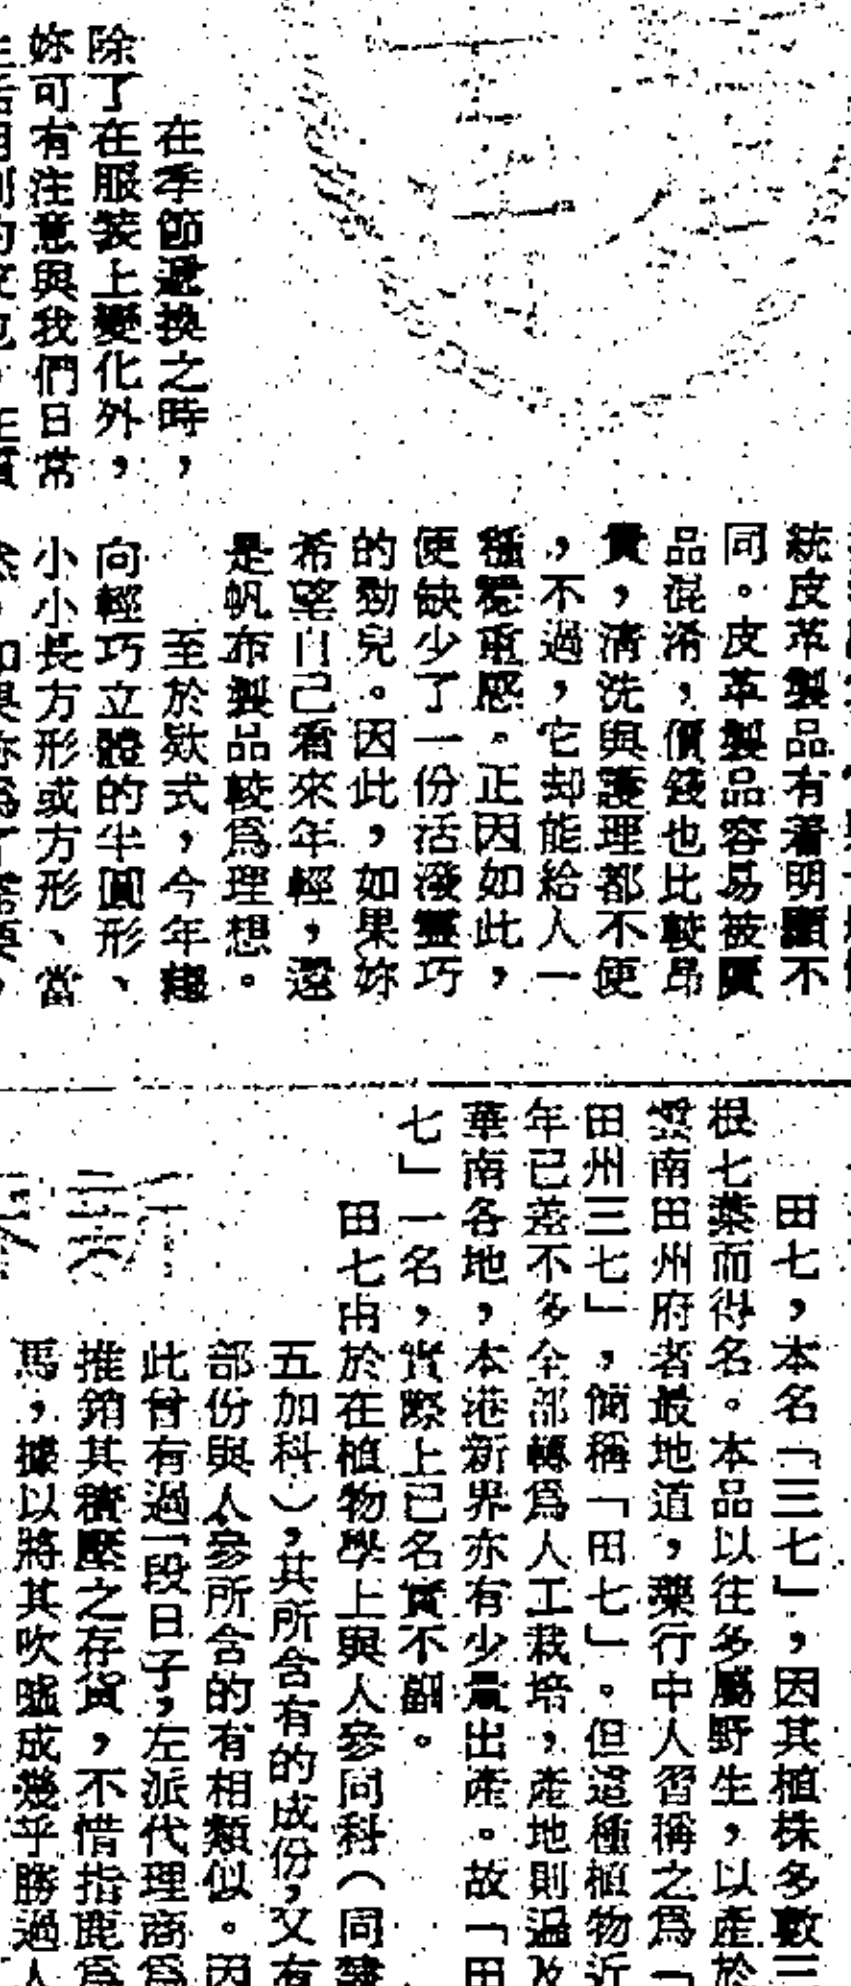 在季節遞換之時，
除了在服裝上變化外，
妳可有注意與我們日常
統皮革製品有着明顯不
同。皮革製品容易被贋
品混淆，價錢也比較昂
貴，清洗與護理都不便
，不過，它却能給人一
種穩重感。正因如此，
便缺少了一份活潑靈巧
的勁兒。因此，如果妳
希望自己看來年輕，還
是帆布製品較爲理想。
至於欵式，今年趨
向輕巧立體的半圓形、
小小長方形或方形、當
田七，本名「三七」，因其植株多數三
根七葉而得名。本品以往多屬野生，以產於
雲南田州府者最地道，藥行中人習稱之爲「
田州三七」，簡稱「田七」。但這種植物近
年已差不多全部轉爲人工栽培，產地則遍及
華南各地，本港新界亦有少量出產。故「田
七」一名，實際上已名實不副。
田七由於在植物學上與人參同科（同隸
五加科），其所含有的成份，又有
部份與人參所含的有相類似。因
此曾有過一段日子，左派代理商爲
推銷其積壓之存貨，不惜指鹿爲
馬，據以將其吹噓成幾乎勝過人